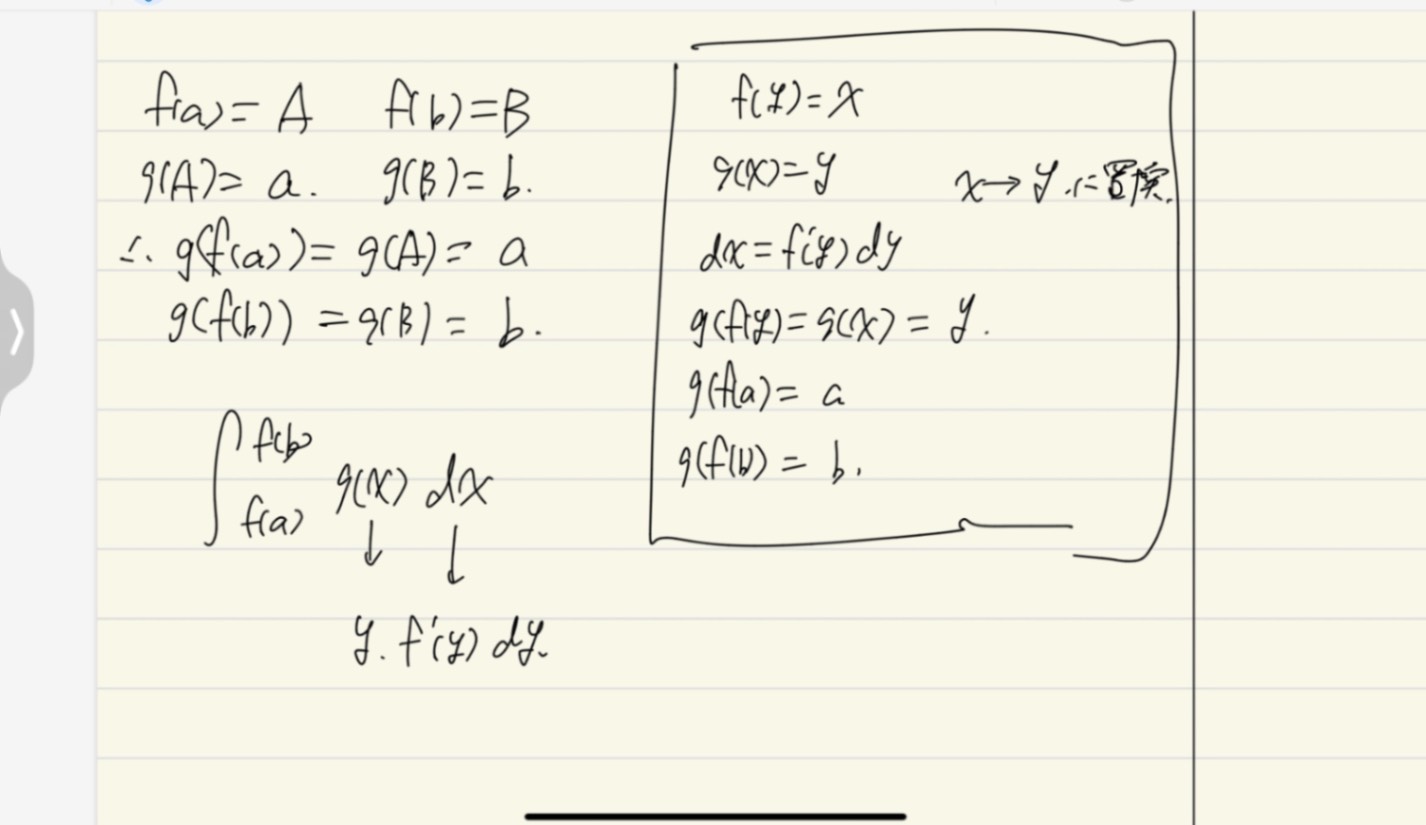 f(a)=A f(b)=B
g(A)=a. g(B)=b.
∴ g(f(a))=g(A)=a
g(f(b))=g(B)=b.
∫ f(b) f(a) g(x) dx
↓ ↓
y. f'(y) dy.
f(y)=x
g(x)=y x→y に置換.
dx=f'(y)dy
g(f(y)=g(x)=y.
g(f(a)=a
g(f(b)=b.